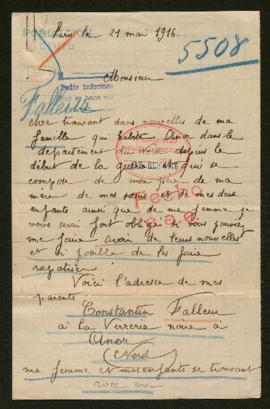 Paris le 21 mai 1916.
5508
Monsieur
Falleur
me trouvant sans nouvelles de ma
famille qui habite Anor dans le
département du Nord depuis le
début de la guerre et qui se
compose de mon père de ma
mère de mes sœurs et de mes deux
enfants ainsi que de ma femme je
vous serai fort obligé si vous pouvez
me faire avoir de leurs nouvelles
et si possible de les faire
rapatrier
Voici l'adresse de mes
parents
Constantin Falleur
à la Verrerie noire à
Anor
(Nord)
ma femme et mes enfants se trouvant
avec ma